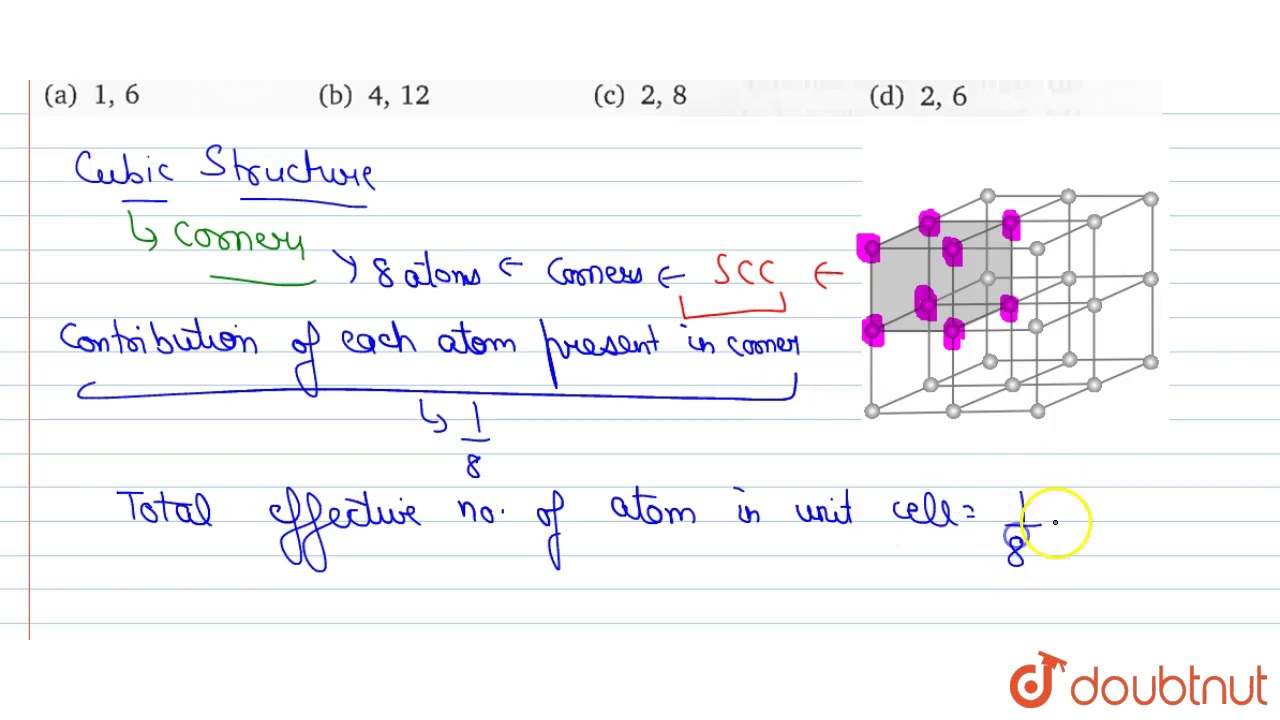 (a) 1, 6 (b) 4, 12 (c) 2, 8 (d) 2, 6
Cubic Structure
↳ corners
↘ 8 atoms ← corners ← SCC ←
Contribution of each atom present in corner
↳ 1/8
Total effective no. of atom in unit cell = 1/8
doubtnut